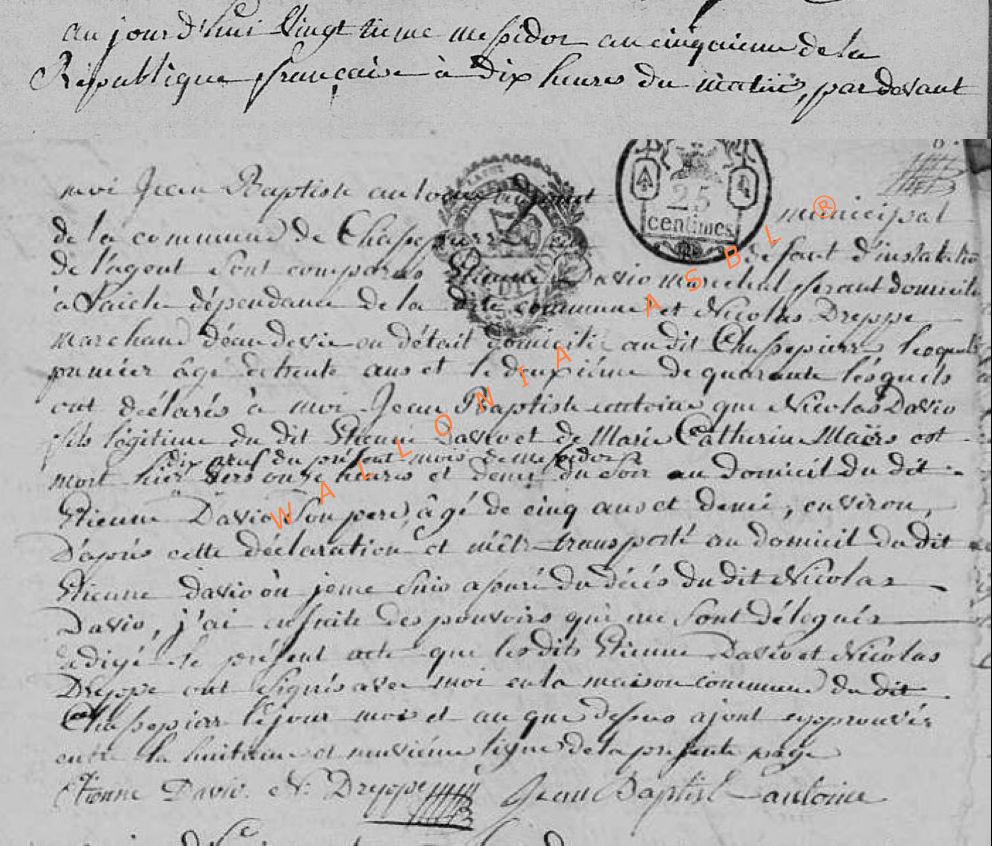 aujourd'hui vingtieme messidor an cinquieme de la
Republique française à dix heures du matin, par devant
moi Jean Baptiste antoine adjoint
municipal
de la commune de Chassepierre
25
centimes
defaut d'installation
de l'agent sont comparus Etienne Davio marechal ferant domicilié
à Laiche dépendance de la dite commune et Nicolas Dreppe
marchand d'eau de vie en détail domicilié au dit Chassepierre le
premier âgé de trente ans et le deuxième de quarante lesquels
ont déclarés à moi Jean Baptiste antoine que Nicolas Davio
fils légitime du dit Etienne Davio et de Marie Catherine Maërs est
dix neuf du présent mois de messidor
mort hier vers onze heures et demi du soir au domicil du dit
Etienne Davio son pere, âgé de cinq ans et demi, environ,
D'après cette déclaration et m'être transporté au domicil du dit
Etienne Davio ou je me suis assuré du décès du dit Nicolas
Davio, j'ai ensuite des pouvoirs qui me sont délégués
rédigé le présent acte que les dits Etienne Davio et Nicolas
Dreppe ont signés avec moi en la maison commune du dit
Chassepierre le jour mois et an que dessus ajout approuvés
entre la huitieme et neuvième ligne de la présente page
Etienne Davio. N. Dreppe Jean Baptist antoine
WALLONIA ASBL ®